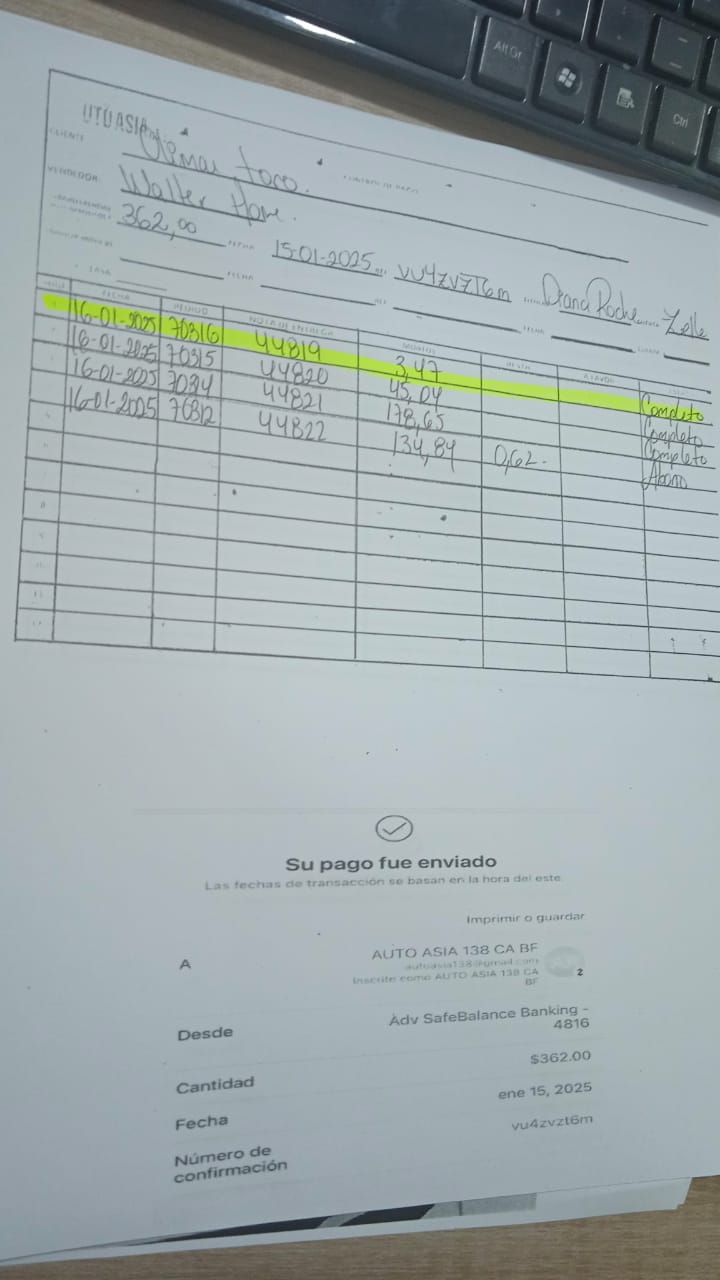 Alt Gr
Ctrl
UTOASIA
CLIENTE
VENDEDOR
Walter
362,00
FECHA
15-01-2025
VU4ZVZT6m
Diana Roche
Zelle
FECHA
FECHA
FECHA
NOTA DE ENTREGA
16-01-2025 70316 44819 3,47 Completo
16-01-2025 70315 44820 45,04 Completo
16-01-2025 44821 178,65 Completo
16-01-2025 44822 134,84 0,62- Abono
Su pago fue enviado
Las fechas de transacción se basan en la hora del este.
Imprimir o guardar
A
AUTO ASIA 138 CA BF
autoasia138@gmail.com
Inscrito como AUTO ASIA 138 CA
BF
2
Desde
Adv SafeBalance Banking -
4816
Cantidad
$362.00
Fecha
ene 15, 2025
Número de
confirmación
vu4zvzt6m